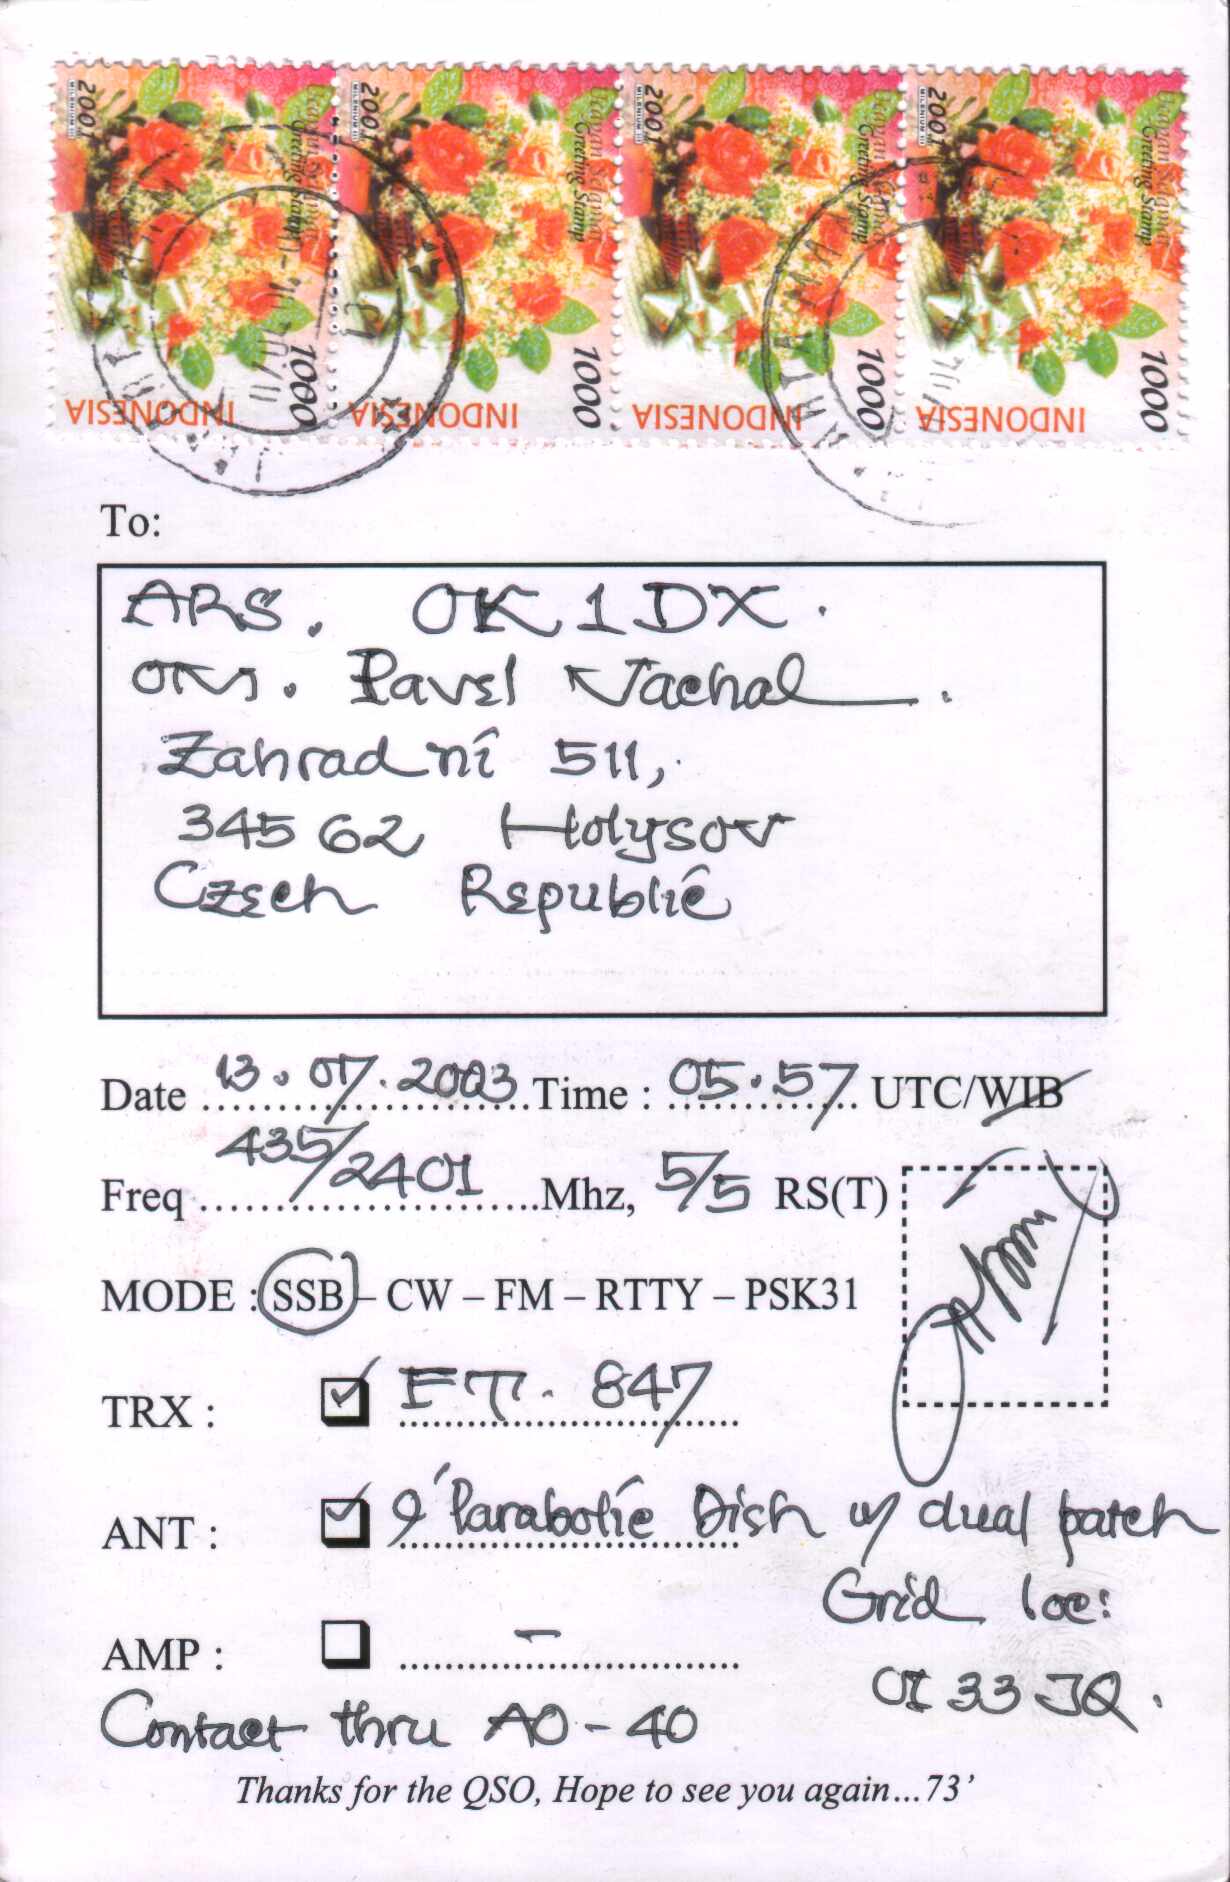 2001 2001 2001 2001
MILENIUM III MILENIUM III MILENIUM III MILENIUM III
Greeting Stamp Greeting Stamp Greeting Stamp
1000 1000 1000 1000
INDONESIA INDONESIA INDONESIA INDONESIA
To:
ARS. OK1DX.
OM. Pavel Vachal.
Zahradní 511,
345 62 Holysov
Czech Republic
Date 13.07.2003 Time : 05.57 UTC/WIB
Freq 435/2401 Mhz, 5/5 RS(T)
MODE : SSB – CW – FM – RTTY – PSK31
TRX : FT. 847
ANT : 9' Parabolic Dish w/ dual patch
Grid loc:
AMP : -
OI 33 JQ.
Contact thru AO-40
Thanks for the QSO, Hope to see you again...73'